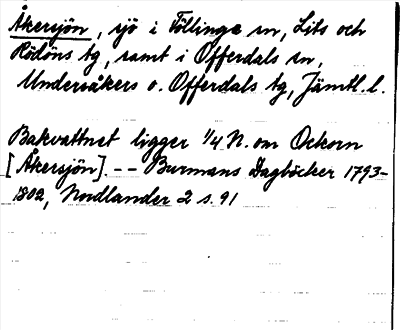 Åkersjön, sjö i Föllinge sn, Lits och
Rödöns tg, samt i Offerdals sn,
Undersåkers o. Offerdals tg, Jämtl. l.
Bakvattnet ligger 1/4 N. om Ockorn
[Åkersjön]. -- Burmans Dagböcker 1793-
1802, Nordlander 2 s. 91